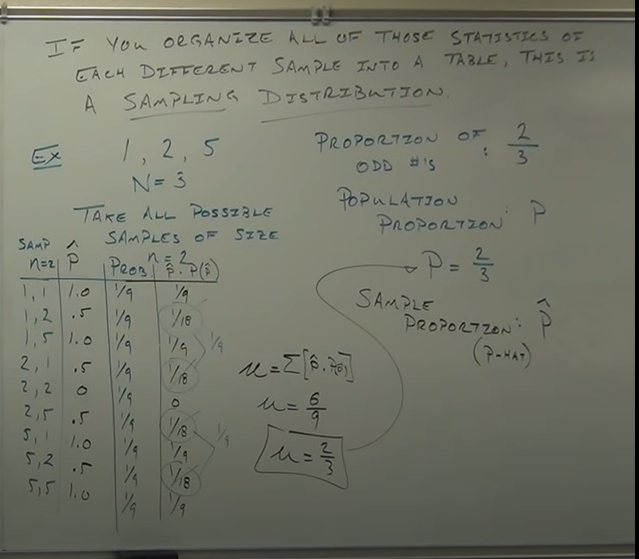 IF YOU ORGANIZE ALL OF THOSE STATISTICS OF
EACH DIFFERENT SAMPLE INTO A TABLE, THIS IS
A SAMPLING DISTRIBUTION.
EX 1, 2, 5
N=3
TAKE ALL POSSIBLE
SAMPLES OF SIZE
n=2
SAMP n=2 p̂ PROB p̂·P(p̂)
1,1 1.0 1/9 1/9
1,2 .5 1/9 1/18
1,5 1.0 1/9 1/9
2,1 .5 1/9 1/18
2,2 0 1/9 0
2,5 .5 1/9 1/18
5,1 1.0 1/9 1/9
5,2 .5 1/9 1/18
5,5 1.0 1/9 1/9
1/9
1/9
μ=Σ[p̂·P(p̂)]
μ=6/9
μ=2/3
PROPORTION OF : 2/3
ODD #'S
POPULATION
PROPORTION: P
P=2/3
SAMPLE
PROPORTION: p̂
(P-HAT)